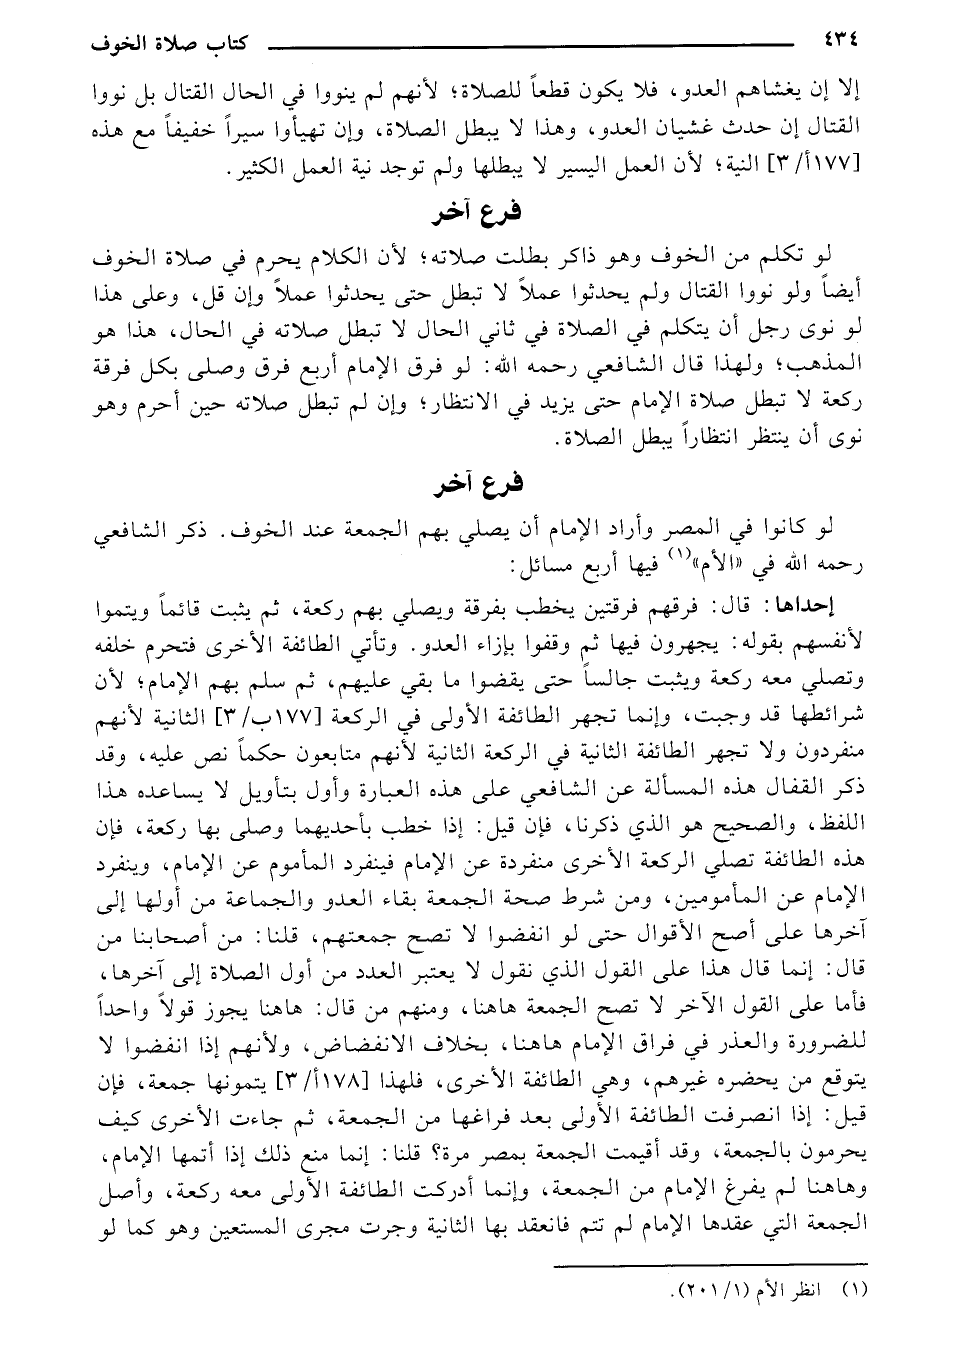 ٤٣٤ كتاب صلاة الخوف
إلا إن يغشاهم العدو، فلا يكون قطعاً للصلاة؛ لأنهم لم ينووا في الحال القتال بل نووا
القتال إن حدث غشيان العدو، وهذا لا يبطل الصلاة، وإن تهيأوا سيراً خفيفاً مع هذه
[١٧٧أ/ ٣] النية؛ لأن العمل اليسير لا يبطلها ولم توجد نية العمل الكثير.
فرع آخر
لو تكلم من الخوف وهو ذاكر بطلت صلاته؛ لأن الكلام يحرم في صلاة الخوف
أيضاً ولو نووا القتال ولم يحدثوا عملاً لا تبطل حتى يحدثوا عملاً وإن قل، وعلى هذا
لو نوى رجل أن يتكلم في الصلاة في ثاني الحال لا تبطل صلاته في الحال، هذا هو
المذهب؛ ولهذا قال الشافعي رحمه الله: لو فرق الإمام أربع فرق وصلى بكل فرقة
ركعة لا تبطل صلاة الإمام حتى يزيد في الانتظار؛ وإن لم تبطل صلاته حين أحرم وهو
نوى أن ينتظر انتظاراً يبطل الصلاة.
فرع آخر
لو كانوا في المصر وأراد الإمام أن يصلي بهم الجمعة عند الخوف. ذكر الشافعي
رحمه الله في «الأم»(١) فيها أربع مسائل:
إحداها: قال: فرقهم فرقتين يخطب بفرقة ويصلي بهم ركعة، ثم يثبت قائماً ويتموا
لأنفسهم بقوله: يجهرون فيها ثم وقفوا بإزاء العدو. وتأتي الطائفة الأخرى فتحرم خلفه
وتصلي معه ركعة ويثبت جالساً حتى يقضوا ما بقي عليهم، ثم سلم بهم الإمام؛ لأن
شرائطها قد وجبت، وإنما تجهر الطائفة الأولى في الركعة [١٧٧ب/ ٣] الثانية لأنهم
منفردون ولا تجهر الطائفة الثانية في الركعة الثانية لأنهم متابعون حكماً نص عليه، وقد
ذكر القفال هذه المسألة عن الشافعي على هذه العبارة وأول بتأويل لا يساعده هذا
اللفظ، والصحيح هو الذي ذكرنا، فإن قيل: إذا خطب بأحديهما وصلى بها ركعة، فإن
هذه الطائفة تصلي الركعة الأخرى منفردة عن الإمام فينفرد المأموم عن الإمام، وينفرد
الإمام عن المأمومين، ومن شرط صحة الجمعة بقاء العدو والجماعة من أولها إلى
آخرها على أصح الأقوال حتى لو انفضوا لا تصح جمعتهم، قلنا: من أصحابنا من
قال: إنما قال هذا على القول الذي نقول لا يعتبر العدد من أول الصلاة إلى آخرها،
فأما على القول الآخر لا تصح الجمعة هاهنا، ومنهم من قال: هاهنا يجوز قولاً واحداً
للضرورة والعذر في فراق الإمام هاهنا، بخلاف الانفضاض، ولأنهم إذا انفضوا لا
يتوقع من يحضره غيرهم، وهي الطائفة الأخرى، فلهذا [١٧٨أ/ ٣] يتمونها جمعة، فإن
قيل: إذا انصرفت الطائفة الأولى بعد فراغها من الجمعة، ثم جاءت الأخرى كيف
يحرمون بالجمعة، وقد أقيمت الجمعة بمصر مرة؟ قلنا: إنما منع ذلك إذا أتمها الإمام،
وهاهنا لم يفرغ الإمام من الجمعة، وإنما أدركت الطائفة الأولى معه ركعة، وأصل
الجمعة التي عقدها الإمام لم تتم فانعقد بها الثانية وجرت مجرى المستعين وهو كما لو
(١) انظر الأم (١/ ٢٠١).